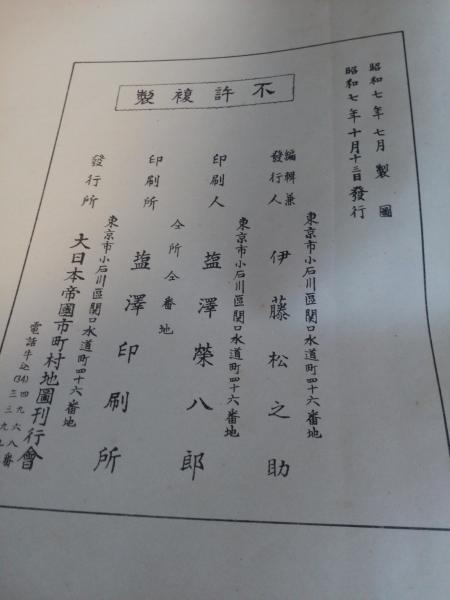 昭和七年七月製圖
昭和七年十月十三日發行
不許複製
編輯兼
發行人
東京市小石川區関口水道町四十六番地
伊藤松之助
印刷人
東京市小石川區関口水道町四十六番地
塩澤榮八郎
印刷所
仝所仝番地
塩澤印刷所
發行所
東京市小石川區関口水道町四十六番地
大日本帝國市町村地圖刊行會
電話牛込(34)
四九六八番